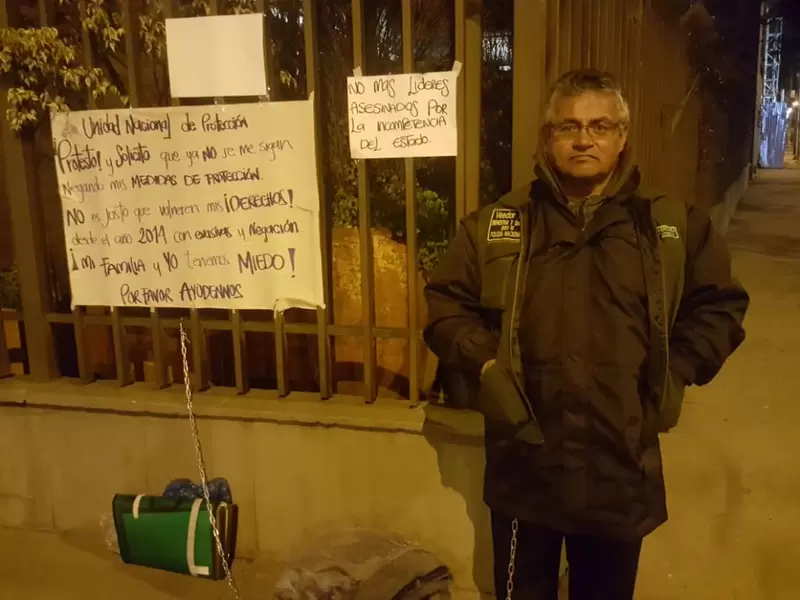 Unidad Nacional de Protección
Protesto! y Solicito que ya NO se me sigan
Negando mis MEDIDAS DE PROTECCIÓN.
NO es justo que vulneren mis ¡DERECHOS!
desde el año 2014 con evasivas y negación
¡MI FAMILIA y YO tenemos MIEDO!
POR FAVOR AYÚDENNOS
NO MÁS LÍDERES
ASESINADOS POR
LA INCOMPETENCIA
DEL ESTADO.
Veedor